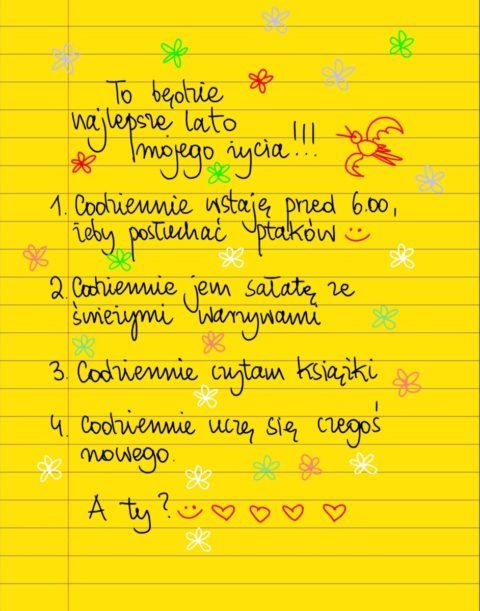 To będzie
najlepsze lato
mojego życia!!!
1. Codziennie wstaję przed 6.00,
żeby posłuchać ptaków
2. Codziennie jem sałatę ze
świeżymi warzywami
3. Codziennie czytam książki
4. Codziennie uczę się czegoś
nowego.
A ty?